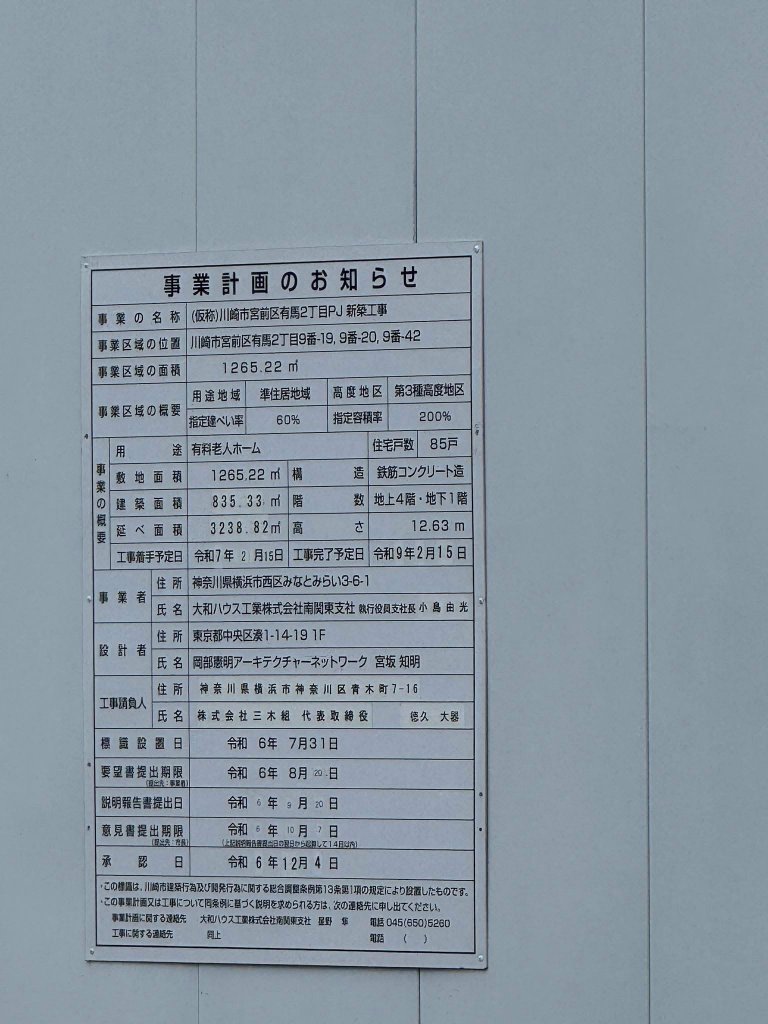 事業計画のお知らせ
事業の名称 (仮称)川崎市宮前区有馬2丁目PJ 新築工事
事業区域の位置 川崎市宮前区有馬2丁目9番-19, 9番-20, 9番-42
事業区域の面積 1265.22 ㎡
事業区域の概要 用途地域 準住居地域 高度地区 第3種高度地区
指定建ぺい率 60% 指定容積率 200%
事業の概要 用途 有料老人ホーム 住宅戸数 85戸
敷地面積 1265.22 ㎡ 構造 鉄筋コンクリート造
建築面積 835.33㎡ 階数 地上4階・地下1階
延べ面積 3238.82㎡ 高さ 12.63 m
工事着手予定日 令和7年 2月15日 工事完了予定日 令和9年2月15日
事業者 住所 神奈川県横浜市西区みなとみらい3-6-1
氏名 大和ハウス工業株式会社南関東支社 執行役員支社長 小島由光
設計者 住所 東京都中央区湊1-14-19 1F
氏名 岡部憲明アーキテクチャーネットワーク 宮坂 知明
工事請負人 住所 神奈川県横浜市神奈川区青木町7-16
氏名 株式会社三木組 代表取締役 徳久 大器
標識設置日 令和 6年 7月31日
要望書提出期限 令和 6年 8月20日
(提出先:事業者)
説明報告書提出日 令和 6年 9月20日
意見書提出期限 令和 6年 10月 7日
(提出先:市長) (上記説明報告書提出日の翌日から起算して14日以内)
承認日 令和 6年12月 4日
・この標識は、川崎市建築行為及び開発行為に関する総合調整条例第13条第1項の規定により設置したものです。
・この事業計画又は工事について同条例に基づく説明を求められる方は、次の連絡先に申し出てください。
事業計画に関する連絡先 大和ハウス工業株式会社南関東支社 星野 隼 電話 045(650)5260
工事に関する連絡先 同上 電話 ( )